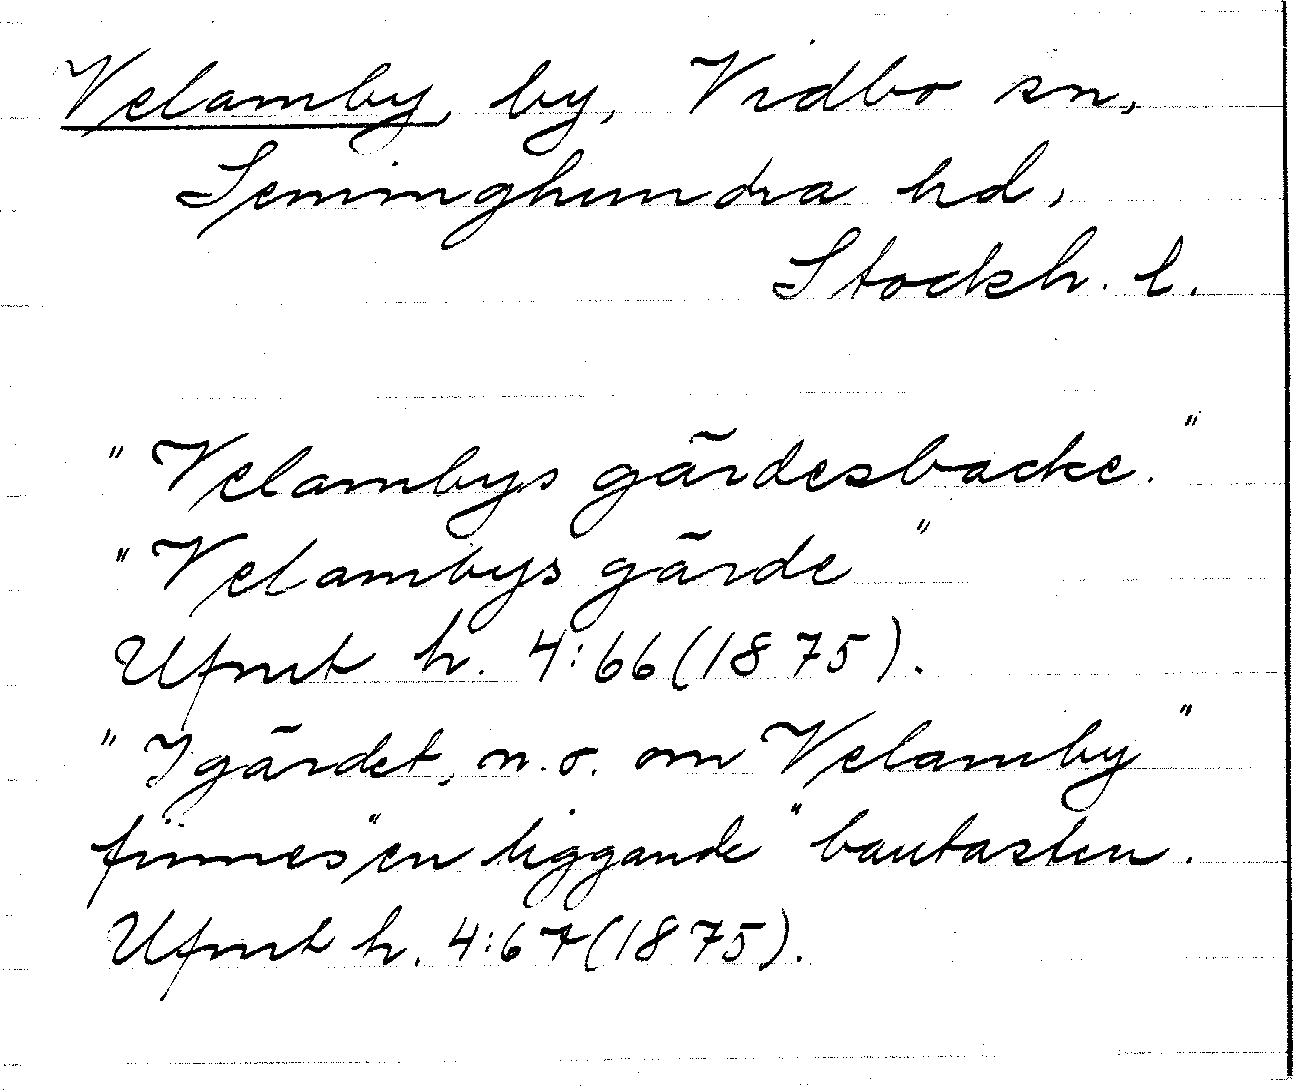 Velamby, by, Vidbo sn,
Seminghundra hd,
Stockh. l.
"Velambys gärdesbacke."
"Velambys gärde"
Ufmt h. 4:66 (1875).
"I gärdet, n.o. om Velamby"
finnes "en liggande" bautasten.
Ufmt h. 4:67 (1875).